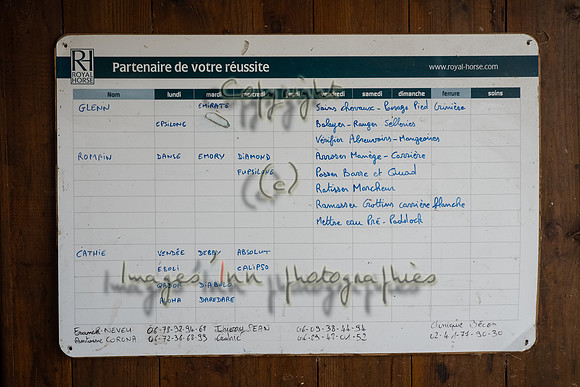 RH ROYAL HORSE Partenaire de votre réussite www.royal-horse.com
Nom lundi mardi mercredi vendredi samedi dimanche ferrure soins
GLENN EMIRATE Soins chevaux - Curage Pied Crinière
EPSILONE Balayer - Ranger Selleries
Vérifier Abreuvoirs - Mangeoires
ROMAIN DANSE EMORY DIAMOND Arroser Manège - Carrière
PUPSILONE Passer Barre et Quad
Ratisser Marcheur
Ramasser Crottins carrière blanche
Mettre eau PRE - Paddock
CATHIE VENDÉE DEBBY ABSOLUT
E.BOLI CALIPSO
DIABOLO
ALOHA DAREDARE
NEVEU 06-78-92-94-69 Thierry JEAN 06-09-38-44-94 Clinique
Antoine CORONA 06-72-36-68-93 Cedric 02-41-71-90-30
Copyright
(c)
Images'Inn photographies